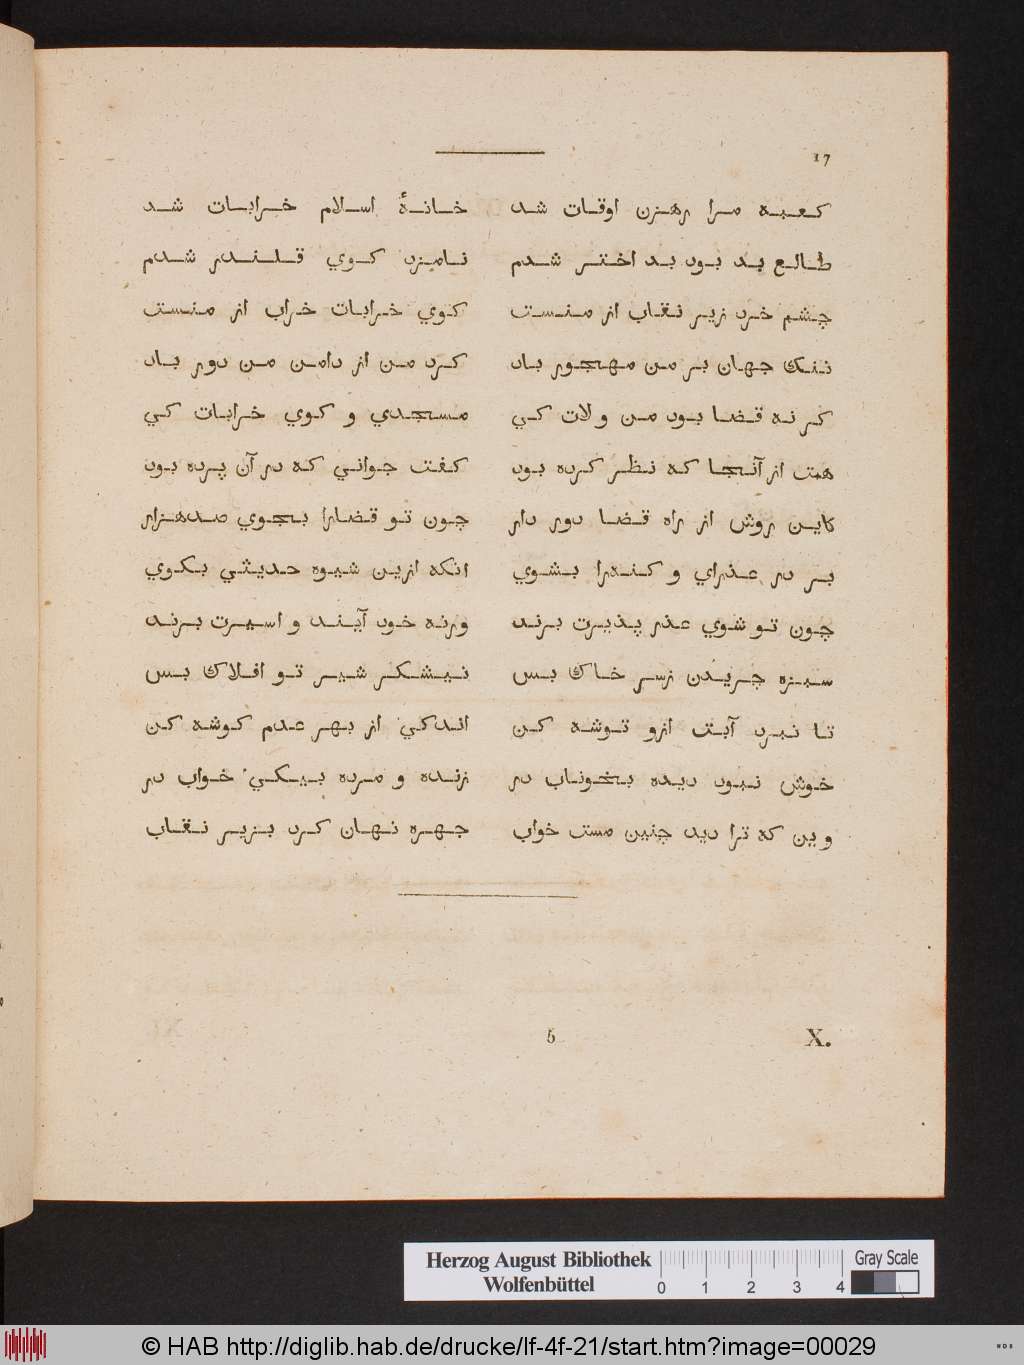 17
كعبه مرا رهزن اوقات شد خانهٔ اسلام خرابات شد
طالع بد بود بد اختر شدم نامزد كوي قلندر شدم
چشم خرد زير نقاب از منست كوي خرابات خراب از منست
ننك جهان بر من مهجور باد كرد من از دامن من دور باد
كر نه قضا بود من و لات كي مسجدي و كوي خرابات كي
همت از آنجا كه نظر كرده بود كفت جواني كه در آن پرده بود
كاين روش از راه قضا دور دار چون تو قضارا بجوي صدهزار
بر در عذراي و كنه‌را بشوي انكه ازين شيوه حديثي بكوي
چون تو شوي عذر پذيرت برند ورنه خود آيند و اسيرت برند
سبزه چريدن زسر خاك بس نيشكر شير تو افلاك بس
تا نبرد آبت ازو توشه كن اندكي از بهر عدم كوشه كن
خوش نبود ديده بخوناب در زنده و مرده بيكي خواب در
وين كه ترا ديد چنين مست خواب چهره نهان كرد بزير نقاب
5 X.
Herzog August Bibliothek
Wolfenbüttel
0 1 2 3 4
Gray Scale
© HAB http://diglib.hab.de/drucke/lf-4f-21/start.htm?image=00029